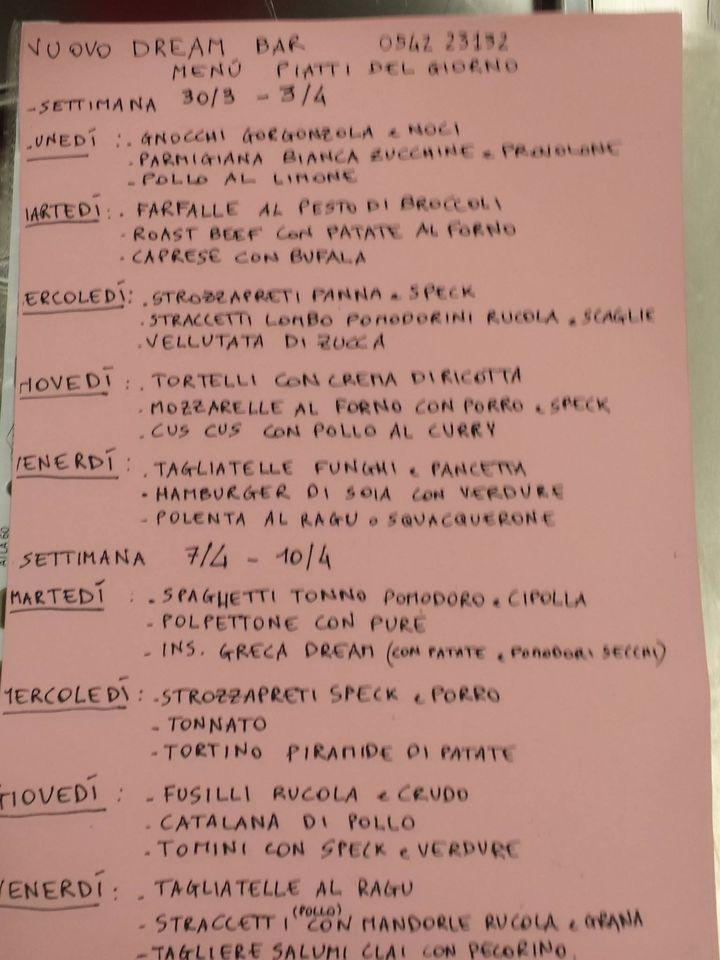 NUOVO DREAM BAR 0542 23132
MENÚ PIATTI DEL GIORNO
-SETTIMANA 30/3 - 3/4
LUNEDÍ :. GNOCCHI GORGONZOLA e NOCI
- PARMIGIANA BIANCA ZUCCHINE e PROVOLONE
- POLLO AL LIMONE
MARTEDÍ :. FARFALLE AL PESTO DI BROCCOLI
- ROAST BEEF CON PATATE AL FORNO
- CAPRESE CON BUFALA
ERCOLEDÍ: . STROZZAPRETI PANNA e SPECK
. STRACCETTI LOMBO POMODORINI RUCOLA e SCAGLIE
. VELLUTATA DI ZUCCA
IOVEDÍ : . TORTELLI CON CREMA DI RICOTTA
. MOZZARELLE AL FORNO CON PORRO e SPECK
. CUS CUS CON POLLO AL CURRY
VENERDÍ : . TAGLIATELLE FUNGHI e PANCETTA
- HAMBURGER DI SOIA CON VERDURE
- POLENTA AL RAGU o SQUACQUERONE
SETTIMANA 7/4 - 10/4
MARTEDÍ : - SPAGHETTI TONNO POMODORO e CIPOLLA
- POLPETTONE CON PURÉ
- INS. GRECA DREAM (CON PATATE e POMODORI SECCHI)
MERCOLEDÍ : - STROZZAPRETI SPECK e PORRO
- TONNATO
- TORTINO PIRAMIDE DI PATATE
GIOVEDÍ : - FUSILLI RUCOLA e CRUDO
- CATALANA DI POLLO
- TOMINI CON SPECK e VERDURE
VENERDÍ : - TAGLIATELLE AL RAGU
- STRACCETTI (POLLO) CON MANDORLE RUCOLA e GRANA
- TAGLIERE SALUMI CLAI CON PECORINO